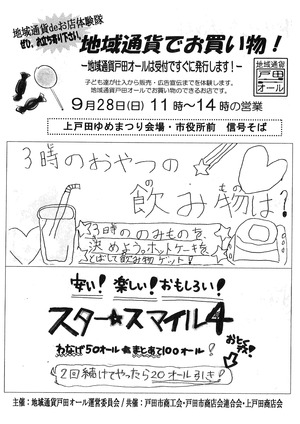 地域通貨deお店体験隊
ぜひ、お立ち寄り下さい。
地域通貨でお買い物！
－地域通貨戸田オールは受付ですぐに発行します！－
子ども達が仕入から販売・広告宣伝までを体験します。
地域通貨戸田オールでお買い物のできるお店です。
地域通貨
戸田
オール
9月28日(日) 11時～14時の営業
上戸田ゆめまつり会場・市役所前 信号そば
3時のおやつの
飲み物は?
3時ののみものを、
決めよう。ホットケーキを、
とばして飲み物ゲット!
安い! 楽しい! おもしろい!
スター☆スマイル4
わなげ50オール まとあて100オール!
おとく
2回続けてやったら20オール引き!
主催：地域通貨戸田オール運営委員会 / 共催：戸田市商工会・戸田市商店会連合会・上戸田商店会